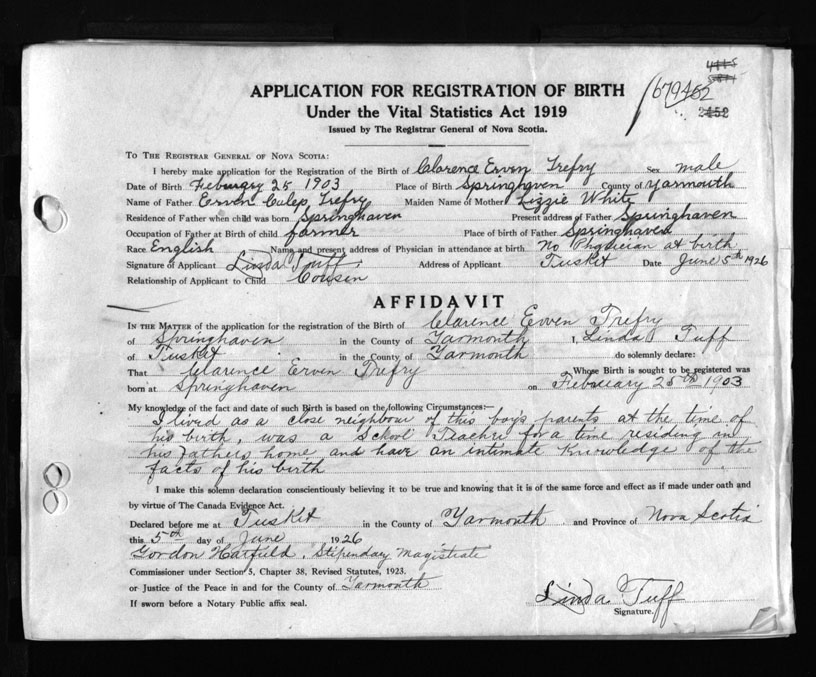 4445
5871
679462
2452
APPLICATION FOR REGISTRATION OF BIRTH
Under the Vital Statistics Act 1919
Issued by The Registrar General of Nova Scotia.
TO THE REGISTRAR GENERAL OF NOVA SCOTIA:
I hereby make application for the Registration of the Birth of Clarence Erven Trefry Sex male
Date of Birth Febuary 25 1903 Place of Birth Springhaven County of Yarmouth
Name of Father Erven Culep Trefry Maiden Name of Mother Lizzie White
Residence of Father when child was born Springhaven Present address of Father Springhaven
Occupation of Father at Birth of child farmer Place of birth of Father Springhaven
Race English Name and present address of Physician in attendance at birth No Physician at birth
Signature of Applicant Linda Tuff. Address of Applicant Tusket Date June 5th 1926
Relationship of Applicant to Child Cousin
AFFIDAVIT
IN THE MATTER of the application for the registration of the Birth of Clarence Erven Trefry
of Springhaven in the County of Yarmouth I, Linda Tuff
of Tusket in the County of Yarmouth do solemnly declare:
That Clarence Erven Trefry Whose Birth is sought to be registered was
born at Springhaven on Febuary 25th 1903
My knowledge of the fact and date of such Birth is based on the following Circumstances:—
I lived as a close neighbour of this boy's parents at the time of
his birth, was a School Teachr for a time residing in
his fathers home and have an intimate knowledge of the
facts of his birth
I make this solemn declaration conscientiously believing it to be true and knowing that it is of the same force and effect as if made under oath and
by virtue of The Canada Evidence Act.
Declared before me at Tusket in the County of Yarmouth and Province of Nova Scotia
this 5th day of June 1926
Gordon Hatfield, Stipendary Magistrate
Commissioner under Section 5, Chapter 38, Revised Statutes, 1923.
or Justice of the Peace in and for the County of Yarmouth
If sworn before a Notary Public affix seal.
Linda Tuff
Signature.